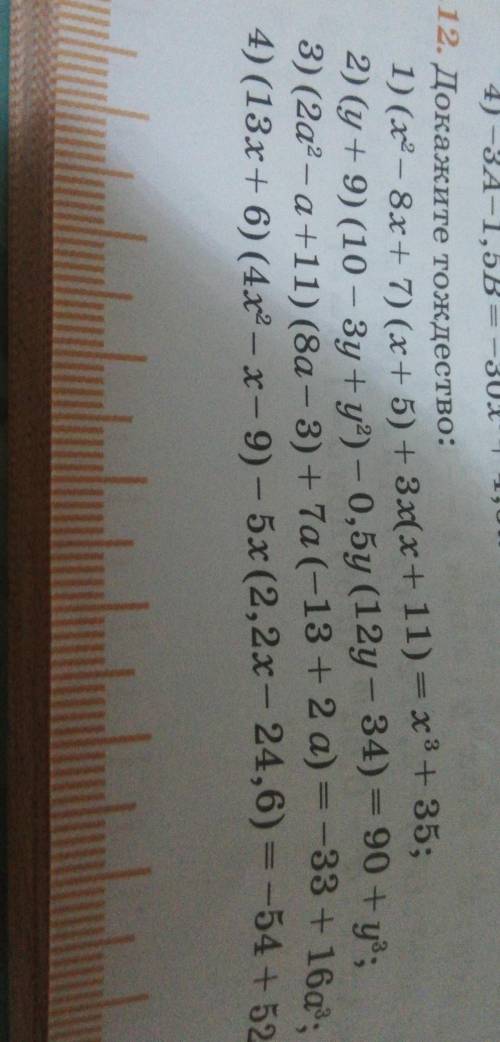 4) –3A–1,5B = –30x + 4,5
12. Докажите тождество:
1) (x² – 8x + 7) (x + 5) + 3x(x + 11) = x³ + 35;
2) (y + 9) (10 – 3y + y²) – 0,5y (12y – 34) = 90 + y³;
3) (2a² – a +11) (8a – 3) + 7a (–13 + 2 a) = –33 + 16a³;
4) (13x + 6) (4x² – x – 9) – 5x (2,2x – 24,6) = –54 + 52